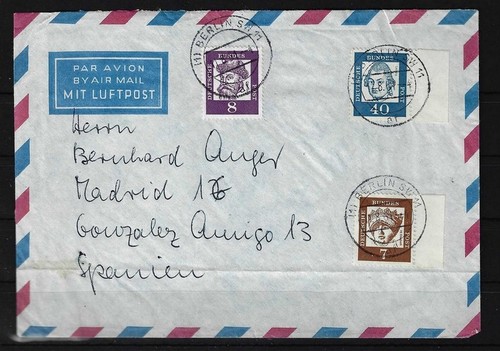 PAR AVION
BY AIR MAIL
MIT LUFTPOST
(1) BERLIN SW 11
DEUTSCHE BUNDESPOST
8
BERLIN SW 11
DEUTSCHE BUNDESPOST
40
Herrn
Bernhard Anger
Madrid 16
Gonzalez Amigo 13
Spanien
(1) BERLIN SW 11
DEUTSCHE BUNDES POST
7